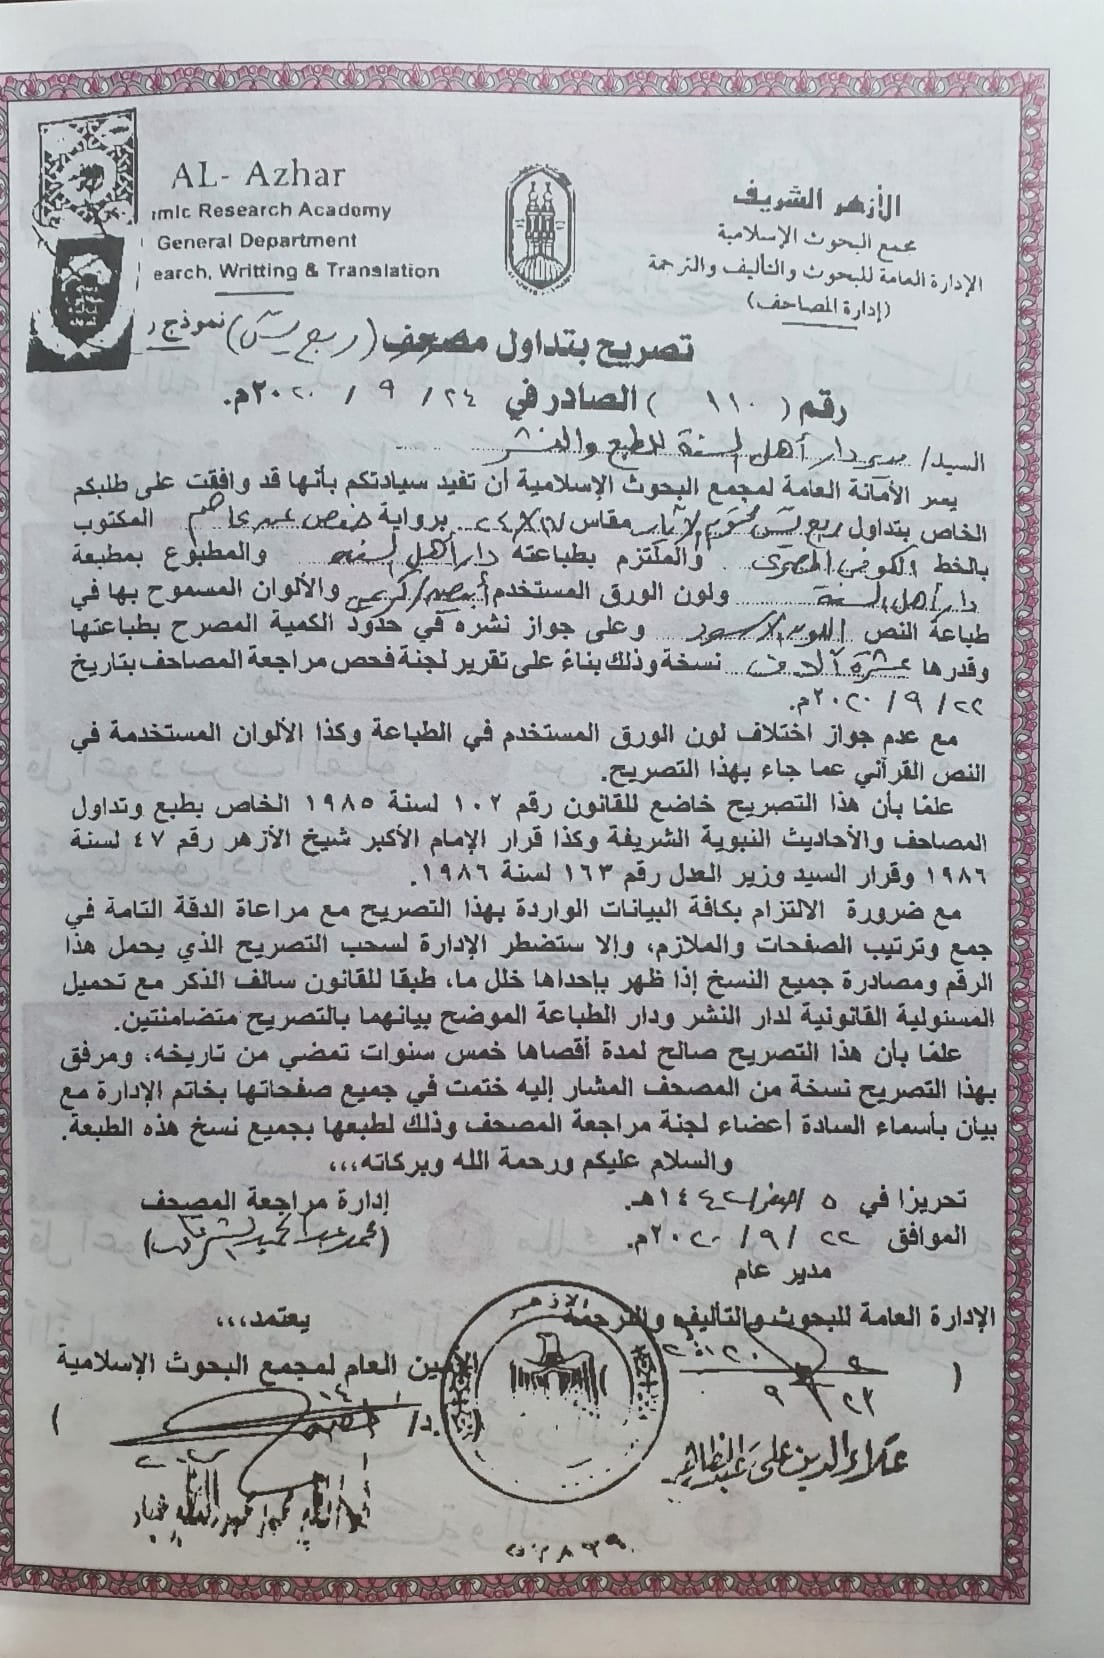 AL- Azhar
الأزهر الشريف
mic Research Academy
مجمع البحوث الإسلامية
General Department
الإدارة العامة للبحوث والتأليف والترجمة
earch, Writting & Translation
(إدارة المصاحف)
نموذج
تصريح بتداول مصحف (ربع يس)
رقم ( ١١٠ ) الصادر في ٢٤ / ٩ / ٢٠٢٠م.
السيد/ مدير دار أهل السنة للطبع والنشر
يسر الأمانة العامة لمجمع البحوث الإسلامية أن تفيد سيادتكم بأنها قد وافقت على طلبكم
الخاص بتداول ربع يس مقاس ١٧×٢٤ برواية حفص عن عاصم المكتوب
بالخط الكوفي والملتزم بطباعته دار أهل السنة والمطبوع بمطبعة
دار أهل السنة ولون الورق المستخدم أبيض/كريمي والألوان المسموح بها في
طباعة النص الأسود وعلى جواز نشره في حدود الكمية المصرح بطباعتها
وقدرها عشرة آلاف نسخة وذلك بناءً على تقرير لجنة فحص مراجعة المصاحف بتاريخ
٢٢ / ٩ / ٢٠٢٠م.
مع عدم جواز اختلاف لون الورق المستخدم في الطباعة وكذا الألوان المستخدمة في
النص القرآني عما جاء بهذا التصريح.
علمًا بأن هذا التصريح خاضع للقانون رقم ١٠٢ لسنة ١٩٨٥ الخاص بطبع وتداول
المصاحف والأحاديث النبوية الشريفة وكذا قرار الإمام الأكبر شيخ الأزهر رقم ٤٧ لسنة
١٩٨٦ وقرار السيد وزير العدل رقم ١٦٣ لسنة ١٩٨٦.
مع ضرورة الالتزام بكافة البيانات الواردة بهذا التصريح مع مراعاة الدقة التامة في
جمع وترتيب الصفحات والملازم، وإلا ستضطر الإدارة لسحب التصريح الذي يحمل هذا
الرقم ومصادرة جميع النسخ إذا ظهر بإحداها خلل ما، طبقا للقانون سالف الذكر مع تحميل
المسئولية القانونية لدار النشر ودار الطباعة الموضح بيانهما بالتصريح متضامنتين.
علمًا بأن هذا التصريح صالح لمدة أقصاها خمس سنوات تمضي من تاريخه، ومرفق
بهذا التصريح نسخة من المصحف المشار إليه ختمت في جميع صفحاتها بخاتم الإدارة مع
بيان بأسماء السادة أعضاء لجنة مراجعة المصحف وذلك لطبعها بجميع نسخ هذه الطبعة.
والسلام عليكم ورحمة الله وبركاته،،،
تحريرًا في ٥ / صفر / ١٤٤٢هـ.
إدارة مراجعة المصحف
الموافق ٢٢ / ٩ / ٢٠٢٠م.
(محمد عبد الحميد)
مدير عام
الإدارة العامة للبحوث والتأليف والترجمة
يعتمد،،،
الأمين العام لمجمع البحوث الإسلامية
د/
الأزهر
علاء الدين علي عبد الظاهر